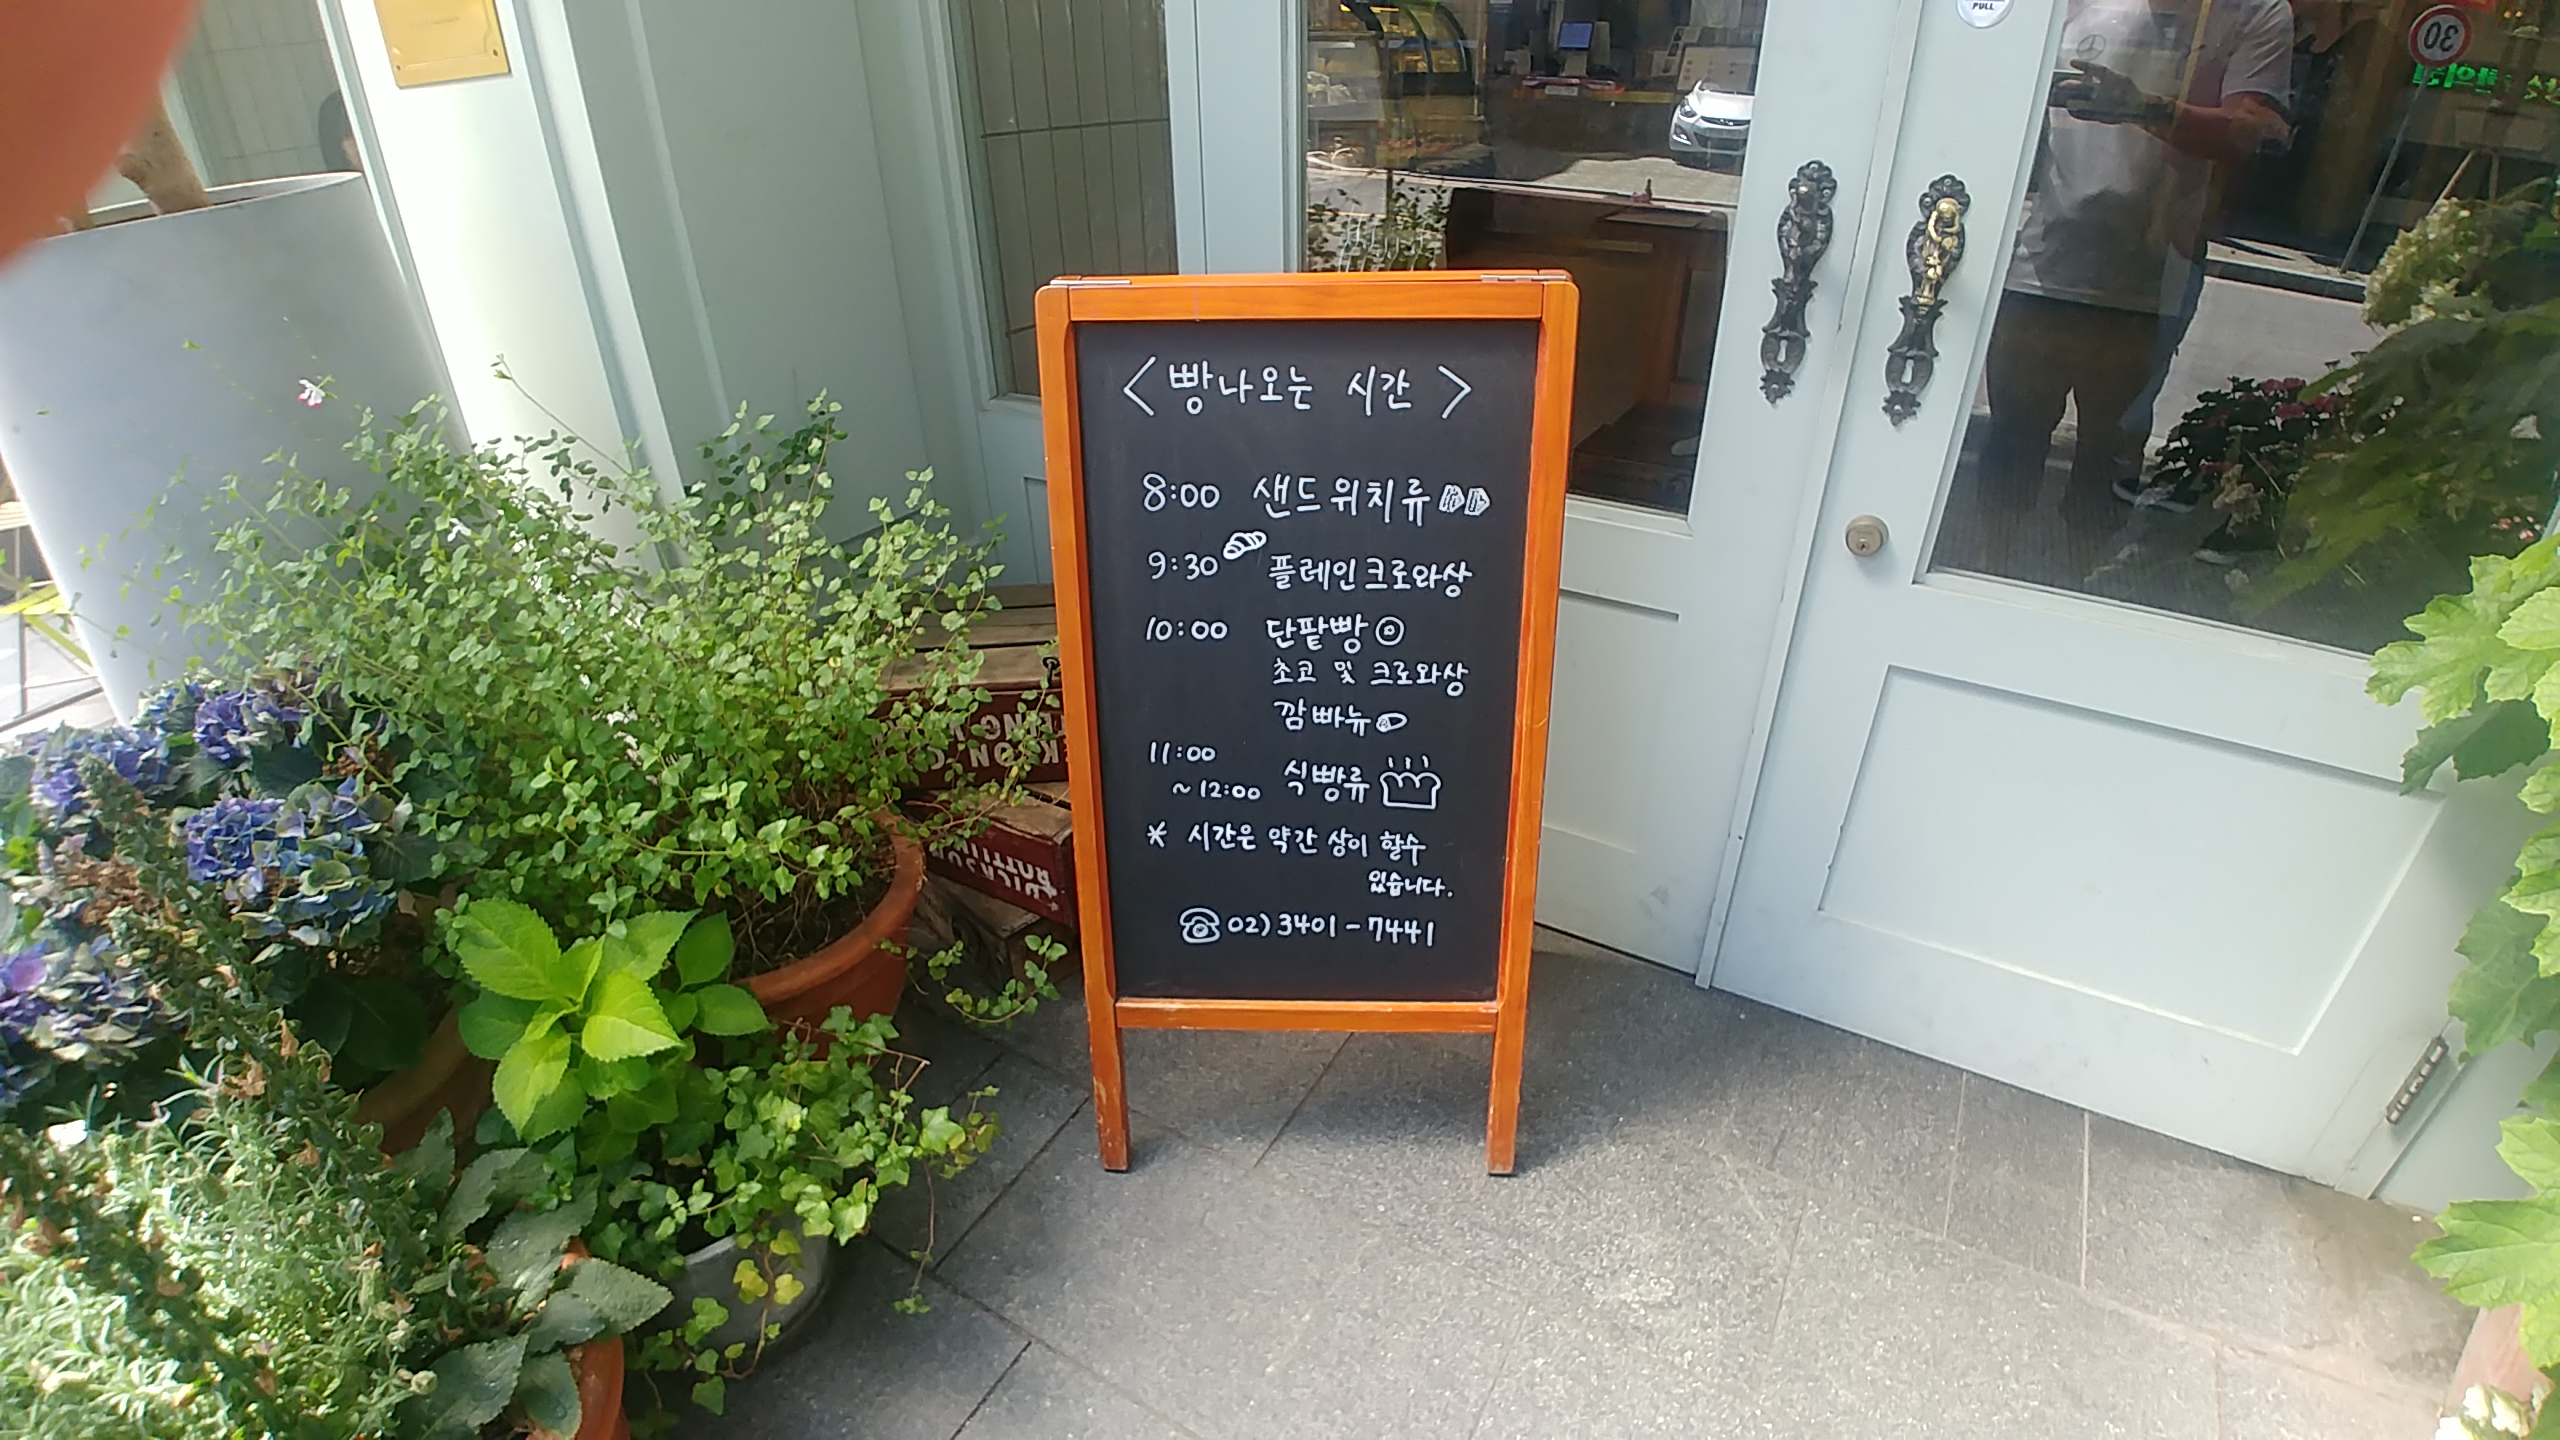 PULL
30
<빵나오는 시간>
8:00 샌드위치류
9:30 플레인크로와상
10:00 단팥빵
초코 및 크로와상
깜빠뉴
11:00
~12:00 식빵류
* 시간은 약간 상이 할수
있습니다.
02)3401-7441